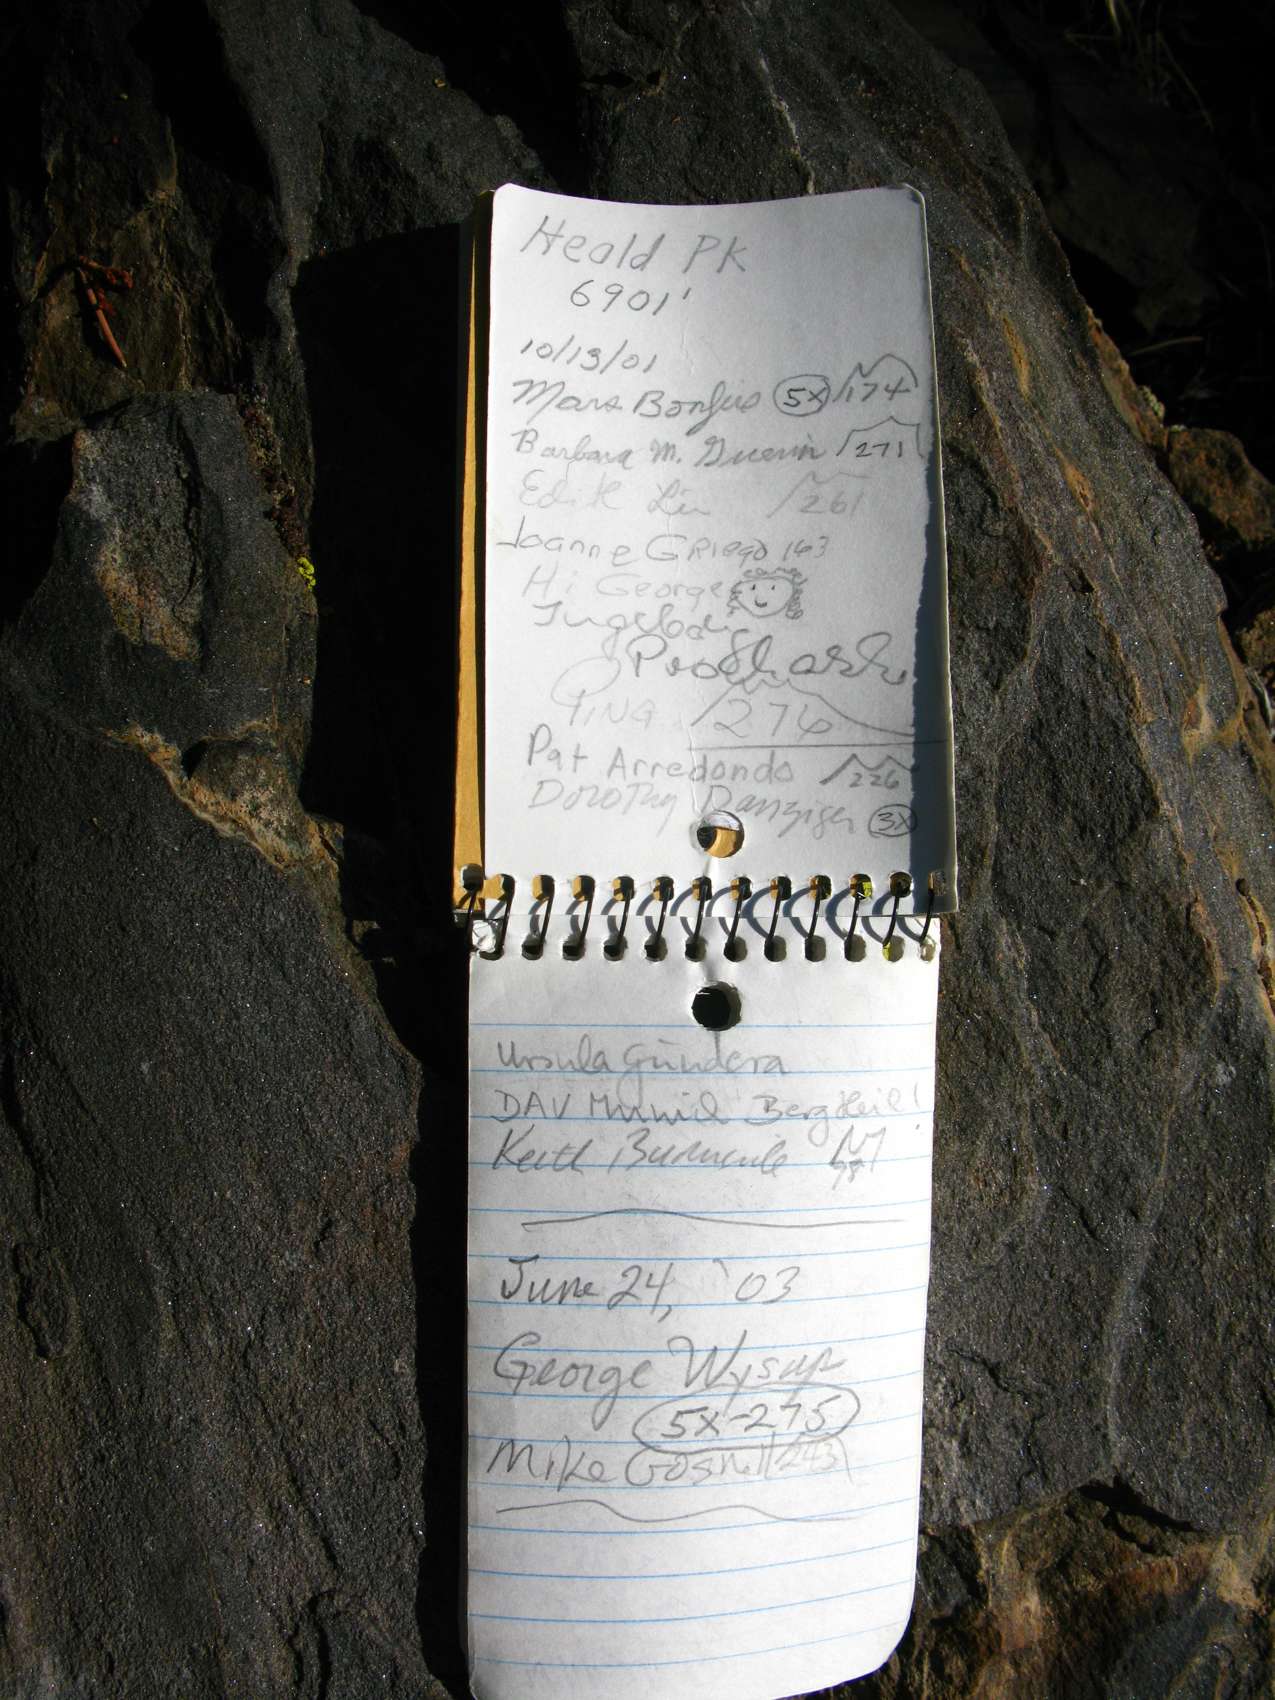 Heald PK
6901'
10/13/01
Mars Bonfire 5X 174
Barbara M. Guerin 271
Edith Liu 261
Joanne GRiego 163
Hi George
Ingeborg
Prochazka
TINA 276
Pat Arredondo 226
Dorothy Danziger 3X
Ursula Gündera
DAV Berg Heil!
Keith 98
June 24, '03
George Wysup
5X-275
Mike Gosnell 243